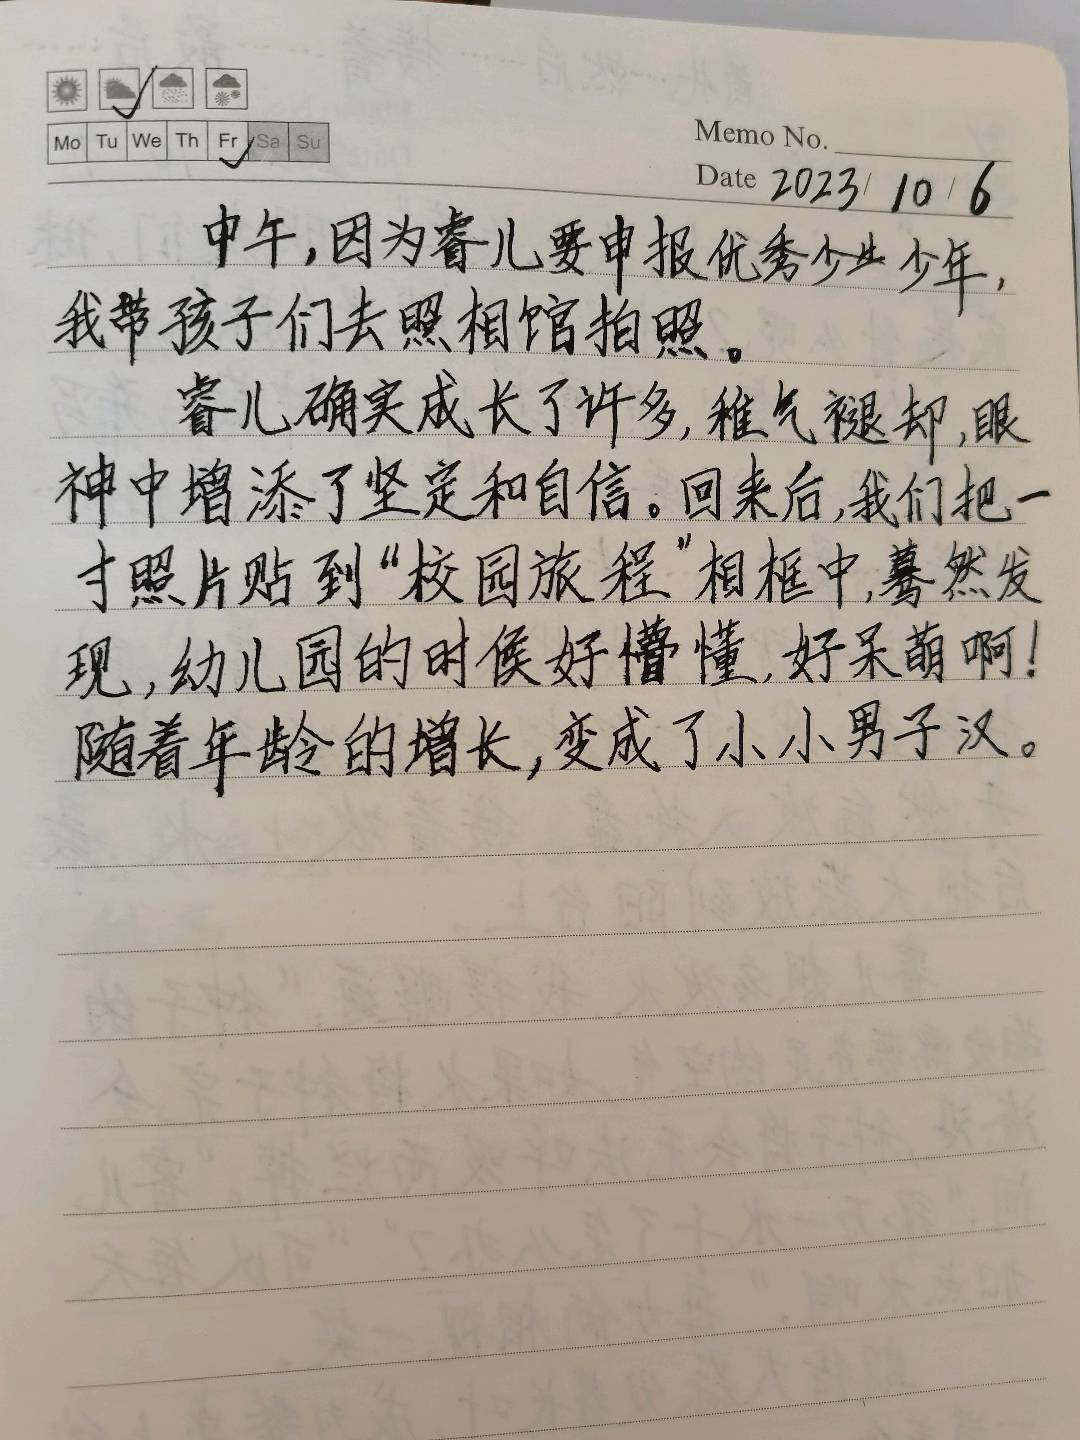 Mo Tu We Th Fr Sa Su
Memo No.
Date 2023/ 10 / 6
中午,因为睿儿要申报优秀少年,
我带孩子们去照相馆拍照。
睿儿确实成长了许多,稚气褪却,眼
神中增添了坚定和自信。回来后,我们把一
寸照片贴到“校园旅程”相框中,蓦然发
现,幼儿园的时候好懵懂,好呆萌啊!
随着年龄的增长,变成了小小男子汉。